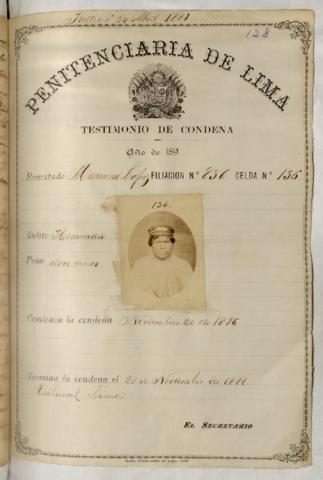 Falleció 24 Abril 1881
128
PENITENCIARIA DE LIMA
TESTIMONIO DE CONDENA
Año de 189
Rematado Mariano Lopez FILIACION N.° 836 CELDA N.° 136
136.
Delito Homicidio
Pena doce años
Comienza la condena Noviembre 20 de 1876
Termina la condena el 20 de Noviembre de 1888
Tribunal Lima
EL SECRETARIO